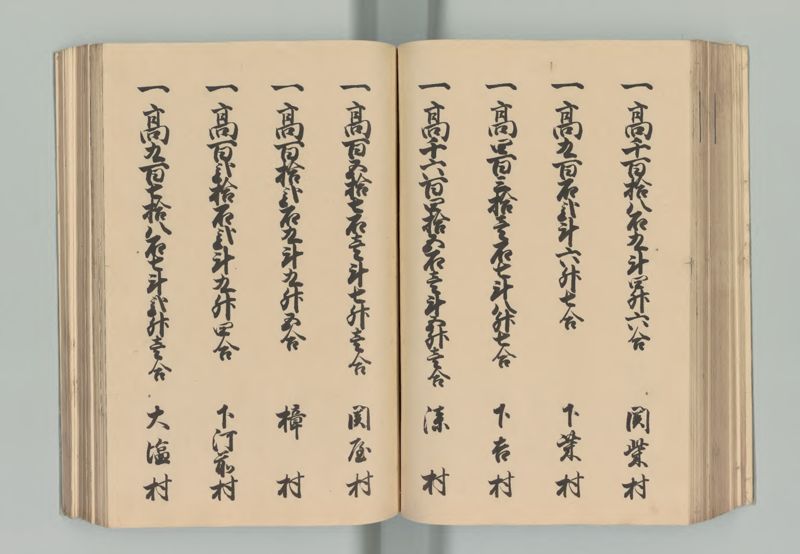 一高千百拾八石九斗四升六合 関柴村
一高九百石弐斗六升七合 下柴村
一高四百三拾壱石七斗八升七合 下吉村
一高千六百四拾五石壱斗五升壱合 漆村
一高百五拾七石壱斗七升壱合 関屋村
一高百拾弐石九斗九升五合 樟村
一高百弐拾石弐斗九升四合 下河前村
一高九百七拾八石七斗弐升壱合 大塩村